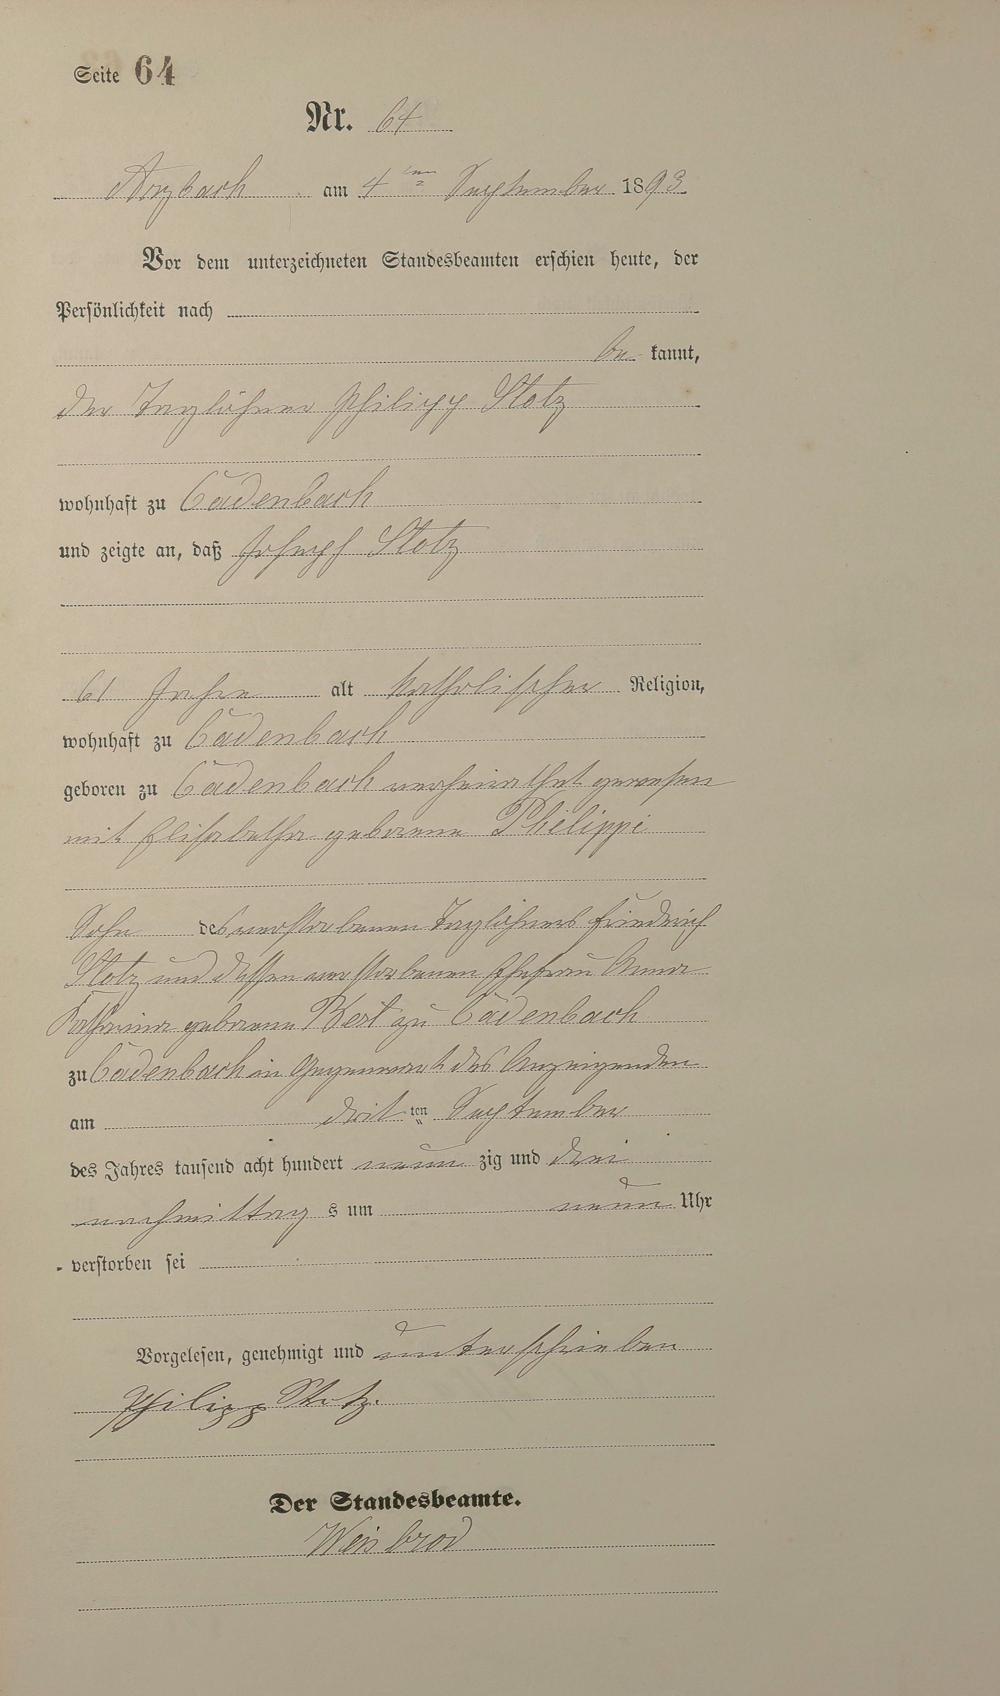 Seite 64
Nr. 64
Arzbach am 4ten September 1893
Vor dem unterzeichneten Standesbeamten erschien heute, der
Persönlichkeit nach
be kannt,
der Taglöhner Philipp Stotz
wohnhaft zu Cadenbach
und zeigte an, daß Joseph Stotz
61 Jahre alt katholischer Religion,
wohnhaft zu Cadenbach
geboren zu Cadenbach verheirathet gewesen
mit Elisabetha geborene Philippi
Sohn des verstorbenen Taglöhners Friedrich
Stotz und dessen verstorbenen Ehefrau Anna
Katharina geborene Best zu Cadenbach
zu Cadenbach in Gegenwart des Anzeigenden
am dritten September
des Jahres tausend acht hundert neun zig und drei
nachmittag s um neun Uhr
verstorben sei
Vorgelesen, genehmigt und unterschrieben
Philipp Stotz.
Der Standesbeamte.
Weisbrod